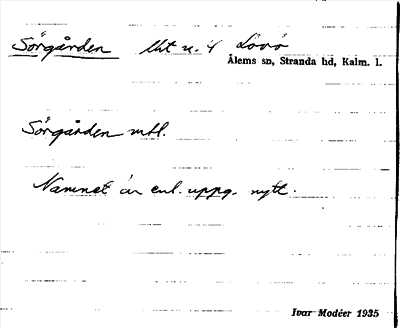 Sörgården lht u. 4 Lövö
Ålems sn, Stranda hd, Kalm. l.
Sörgården mtl.
Namnet är enl. uppg. nytt.
Ivar Modéer 1935